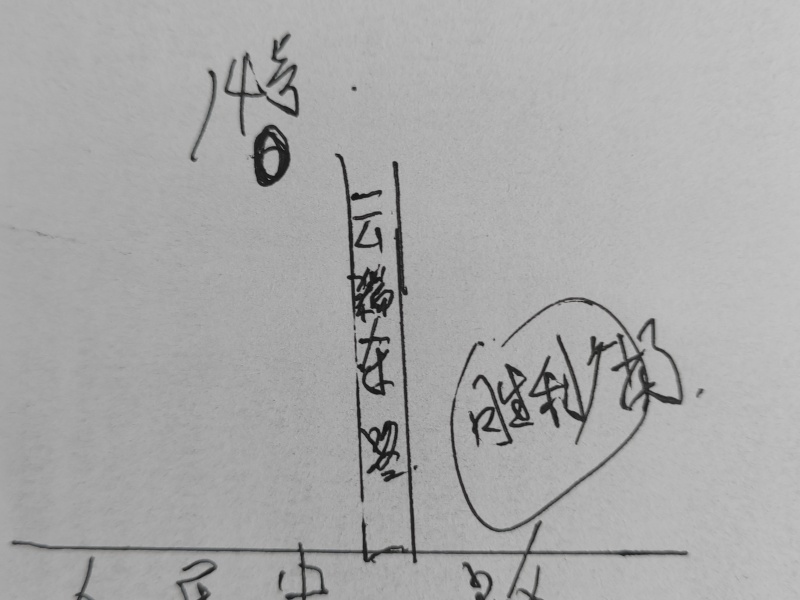 14号
云鹤东路
胜利广场
人民中路